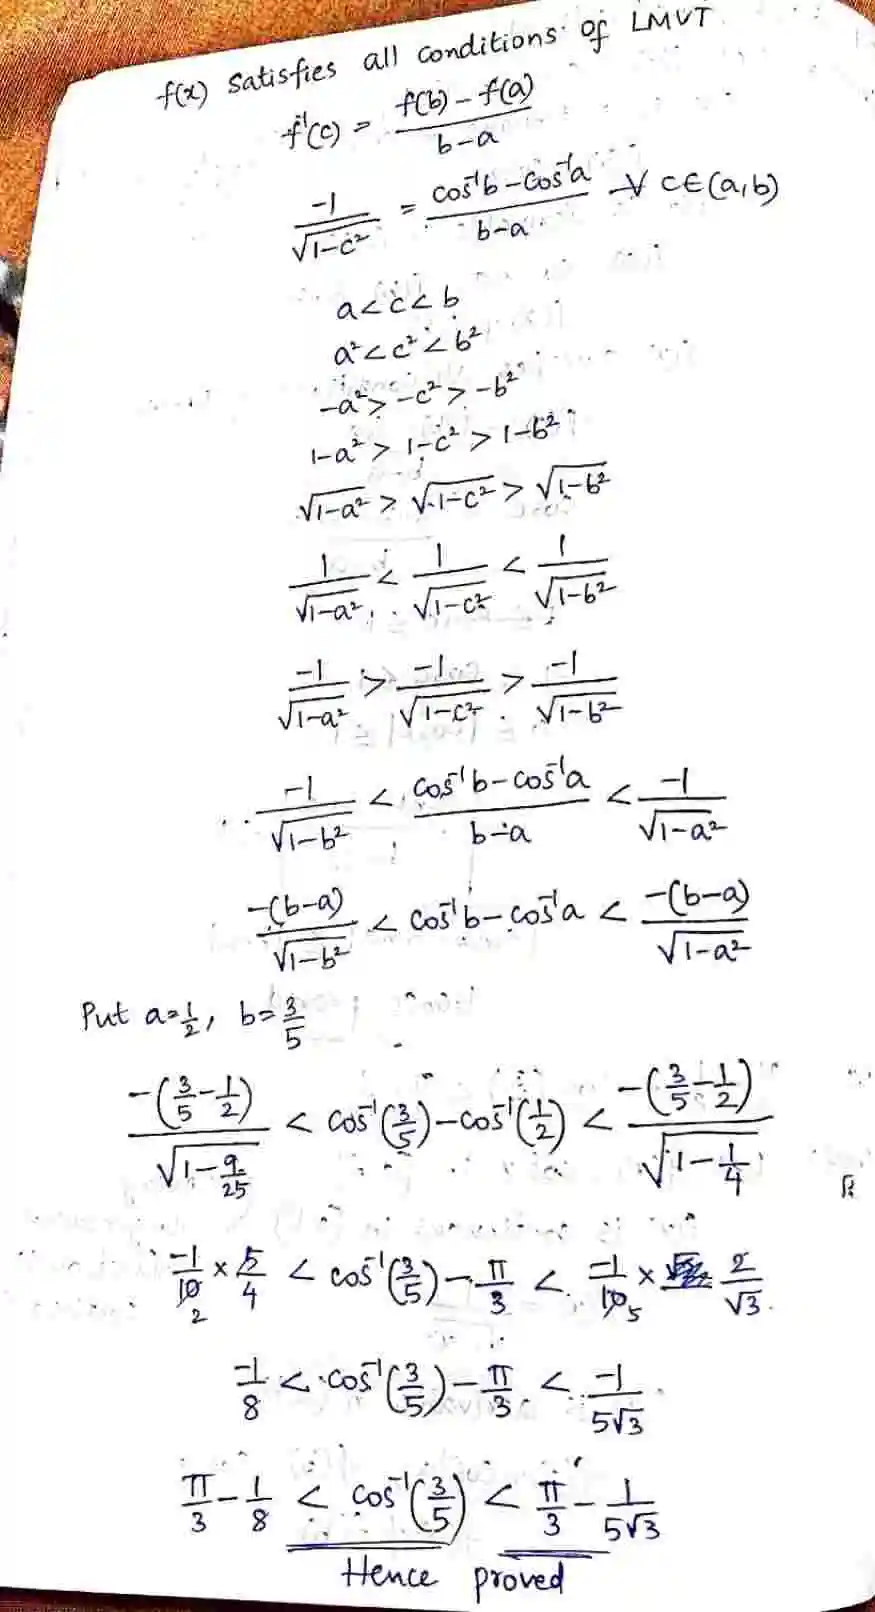 f(x) Satisfies all conditions of LMVT
f'(c) = (f(b) - f(a))/(b-a)
-1/√(1-c²) = (cos⁻¹b - cos⁻¹a)/(b-a) ∀ c∈(a,b)
a<c<b
a²<c²<b²
-a²>-c²>-b²
1-a²>1-c²>1-b²
√(1-a²) > √(1-c²) > √(1-b²)
1/√(1-a²) < 1/√(1-c²) < 1/√(1-b²)
-1/√(1-a²) > -1/√(1-c²) > -1/√(1-b²)
-1/√(1-b²) < (cos⁻¹b - cos⁻¹a)/(b-a) < -1/√(1-a²)
-(b-a)/√(1-b²) < cos⁻¹b - cos⁻¹a < -(b-a)/√(1-a²)
Put a=1/2, b=3/5
-(3/5 - 1/2)/√(1-9/25) < cos⁻¹(3/5) - cos⁻¹(1/2) < -(3/5 - 1/2)/√(1-1/4)
-1/10 2 × 5/4 < cos⁻¹(3/5) - π/3 < -1/10 5 × 2/√3
-1/8 < cos⁻¹(3/5) - π/3 < -1/5√3
π/3 - 1/8 < cos⁻¹(3/5) < π/3 - 1/5√3
Hence proved